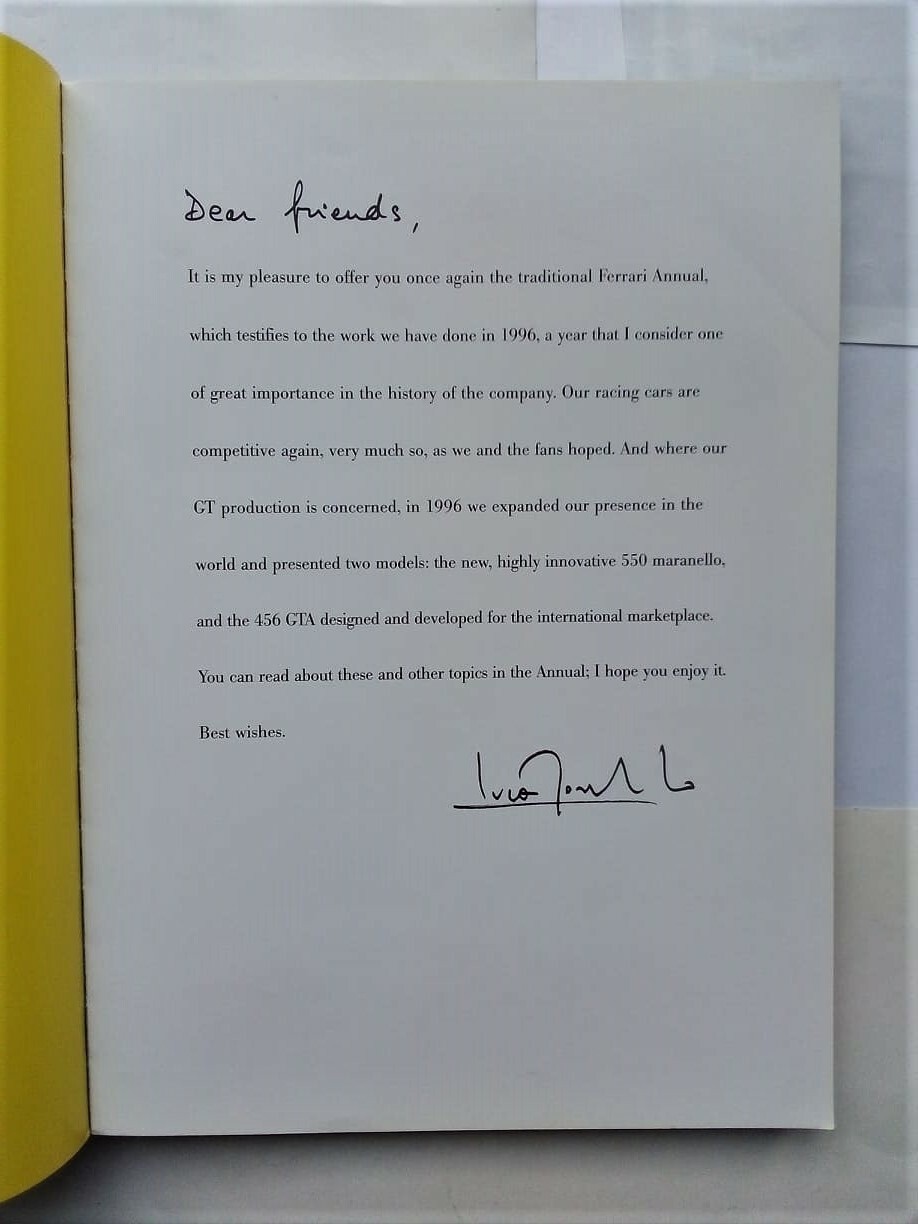 Dear friends,
It is my pleasure to offer you once again the traditional Ferrari Annual,
which testifies to the work we have done in 1996, a year that I consider one
of great importance in the history of the company. Our racing cars are
competitive again, very much so, as we and the fans hoped. And where our
GT production is concerned, in 1996 we expanded our presence in the
world and presented two models: the new, highly innovative 550 maranello,
and the 456 GTA designed and developed for the international marketplace.
You can read about these and other topics in the Annual; I hope you enjoy it.
Best wishes.